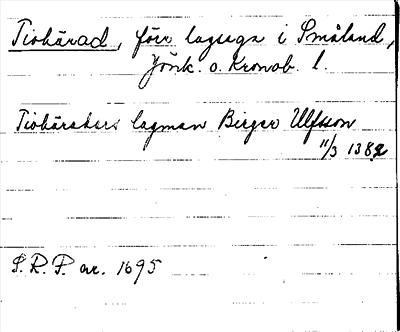 Tiohärad, förr lagsaga i Småland,
Jönk. o. Kronob. l.
Tiohäraders lagman Birger Ulfsson
11/3 1382
S. R. P. nr. 1695